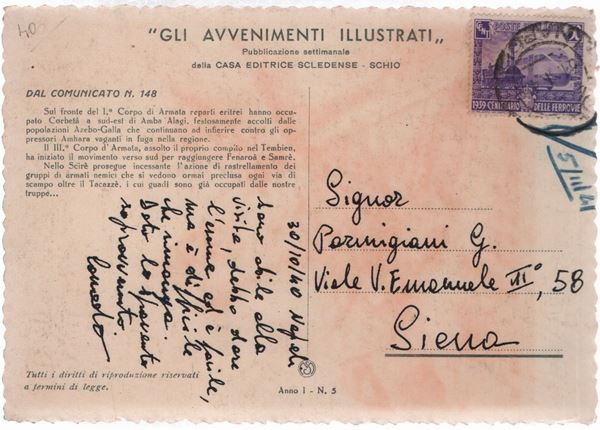 40
"GLI AVVENIMENTI ILLUSTRATI„
Pubblicazione settimanale
della CASA EDITRICE SCLEDENSE - SCHIO
POSTE
1939 CENTENARIO DELLE FERROVIE
DAL COMUNICATO N. 148
Sul fronte del I.° Corpo di Armata reparti eritrei hanno occu-
pato Corbetà a sud-est di Amba Alagi, festosamente accolti dalle
popolazioni Azebo-Galla che continuano ad infierire contro gli op-
pressori Amhara vaganti in fuga nella regione.
Il III.° Corpo d'Armata, assolto il proprio compito nel Tembien,
ha iniziato il movimento verso sud per raggiungere Fenaroà e Samrè.
Nello Scirè prosegue incessante l'azione di rastrellamento dei
gruppi di armati nemici che si vedono ormai preclusa ogni via di
scampo oltre il Tacazzè, i cui guadi sono già occupati dalle nostre
truppe...
30/10/40 Napoli
Sarò abile alla
visita, debbo dare
l'esame ed è facile,
ma è difficile
che rimanga.
Dato lo spavento
Corrado
5/III 41
Signor
Parmigiani G.
Viale V. Emanuele III°, 58
Siena
Tutti i diritti di riproduzione riservati
a termini di legge.
Anno I - N. 5